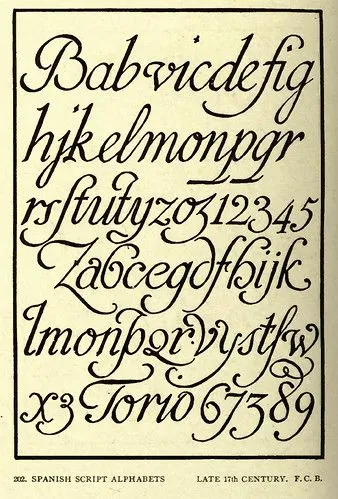 Babvicdefig
hjkelmonpqr
rsſtutyzoz12345
Zabcegdfhijk
lmonpqr·vystſw
x3 Torio 67389
202. SPANISH SCRIPT ALPHABETS LATE 17th CENTURY. F. C. B.